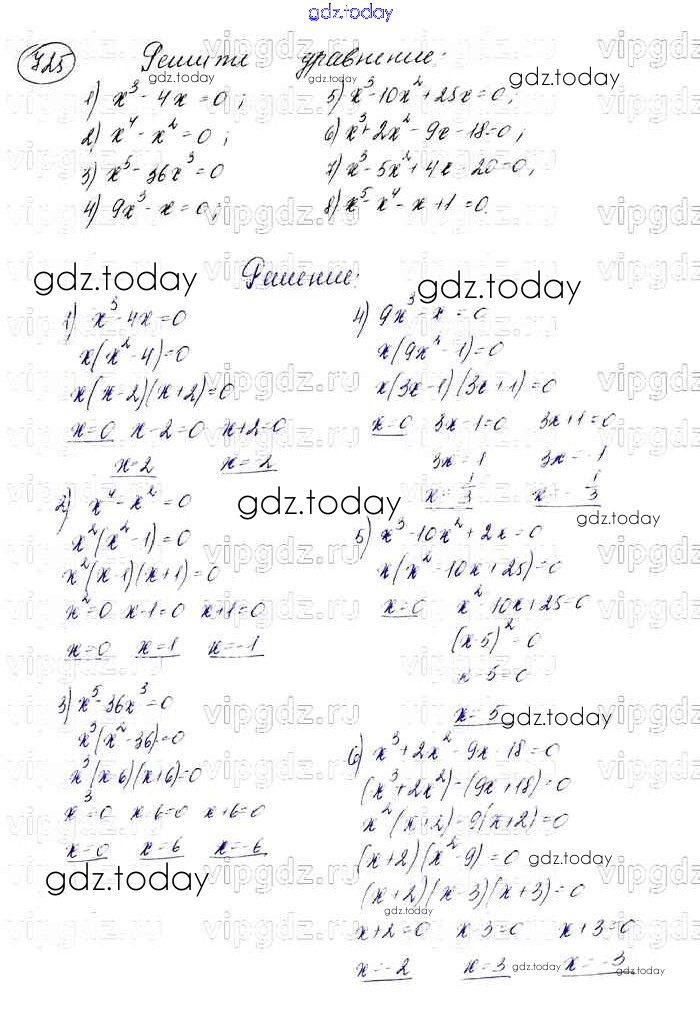 gdz.today
725 Решите уравнение:
1) x³ - 4x = 0;
2) x⁴ - x² = 0;
3) x⁵ - 36x³ = 0
4) 9x³ - x = 0;
5) x³ - 10x² + 25x = 0;
6) x³ + 2x² - 9x - 18 = 0;
7) x³ - 5x² + 4x - 20 = 0;
8) x⁵ - x⁴ - x + 1 = 0.
gdz.today
gdz.today
vipgdz.ru
Решение:
gdz.today
gdz.today
1) x³ - 4x = 0
x(x² - 4) = 0
x(x - 2)(x + 2) = 0
x = 0 x - 2 = 0 x + 2 = 0
x = 2 x = - 2
2) x⁴ - x² = 0
x²(x² - 1) = 0
x²(x - 1)(x + 1) = 0
x² = 0 x - 1 = 0 x + 1 = 0
x = 0 x = 1 x = -1
3) x⁵ - 36x³ = 0
x³(x² - 36) = 0
x³(x - 6)(x + 6) = 0
x³ = 0 x - 6 = 0 x + 6 = 0
x = 0 x = 6 x = -6
gdz.today
4) 9x³ - x = 0
x(9x² - 1) = 0
x(3x - 1)(3x + 1) = 0
x = 0 3x - 1 = 0 3x + 1 = 0
3x = 1 3x = - 1
x = 1/3 x = - 1/3
gdz.today
gdz.today
5) x³ - 10x² + 2x = 0
x(x² - 10x + 25) = 0
x = 0 x² - 10x + 25 = 0
(x - 5)² = 0
x - 5 = 0
x = 5
gdz.today
6) x³ + 2x² - 9x - 18 = 0
(x³ + 2x²) - (9x + 18) = 0
x²(x + 2) - 9(x + 2) = 0
(x + 2)(x² - 9) = 0
gdz.today
(x + 2)(x - 3)(x + 3) = 0
gdz.today
x + 2 = 0 x - 3 = 0 x + 3 = 0
x = -2 x = 3 x = -3
gdz.today
gdz.today